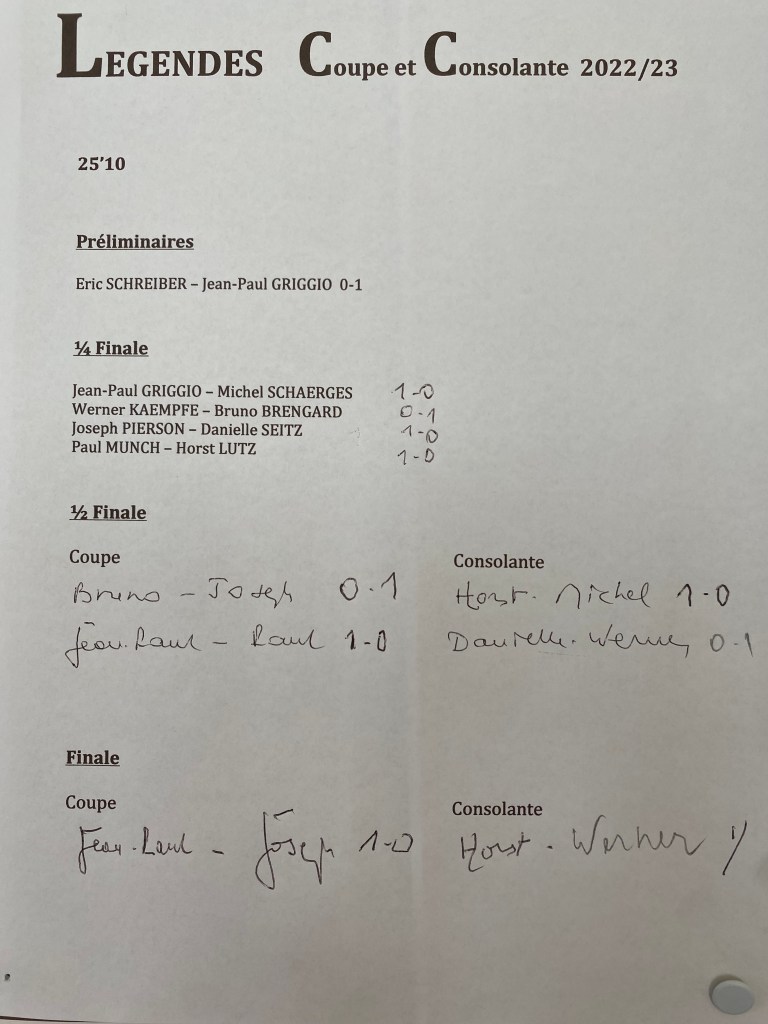 LEGENDES Coupe et Consolante 2022/23
25'10
Préliminaires
Eric SCHREIBER – Jean-Paul GRIGGIO 0-1
¼ Finale
Jean-Paul GRIGGIO – Michel SCHAERGES 1-0
Werner KAEMPFE – Bruno BRENGARD 0-1
Joseph PIERSON – Danielle SEITZ 1-0
Paul MUNCH – Horst LUTZ 1-0
½ Finale
Coupe
Bruno – Joseph 0-1
Jean-Paul – Paul 1-0
Consolante
Horst - Michel 1-0
Danielle - Werner 0-1
Finale
Coupe
Jean-Paul – Joseph 1-0
Consolante
Horst - Werner